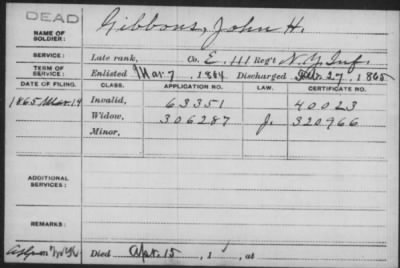 DEAD
NAME OF SOLDIER: Gibbons, John H.
SERVICE: Late rank, Co. E. 111 Reg't N.Y. Inf.
TERM OF SERVICE: Enlisted Mar. 7, 1864 Discharged Feb. 27, 1865
DATE OF FILING. CLASS. APPLICATION NO. LAW. CERTIFICATE NO.
1865 Mar. 14 Invalid, 63351 40023
Widow, 306287 J. 320966
Minor,
ADDITIONAL SERVICES:
REMARKS:
Died Apr. 15, 1 , at